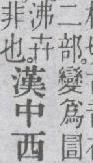 二部。變爲圖
沸卉
非也。
漢中西